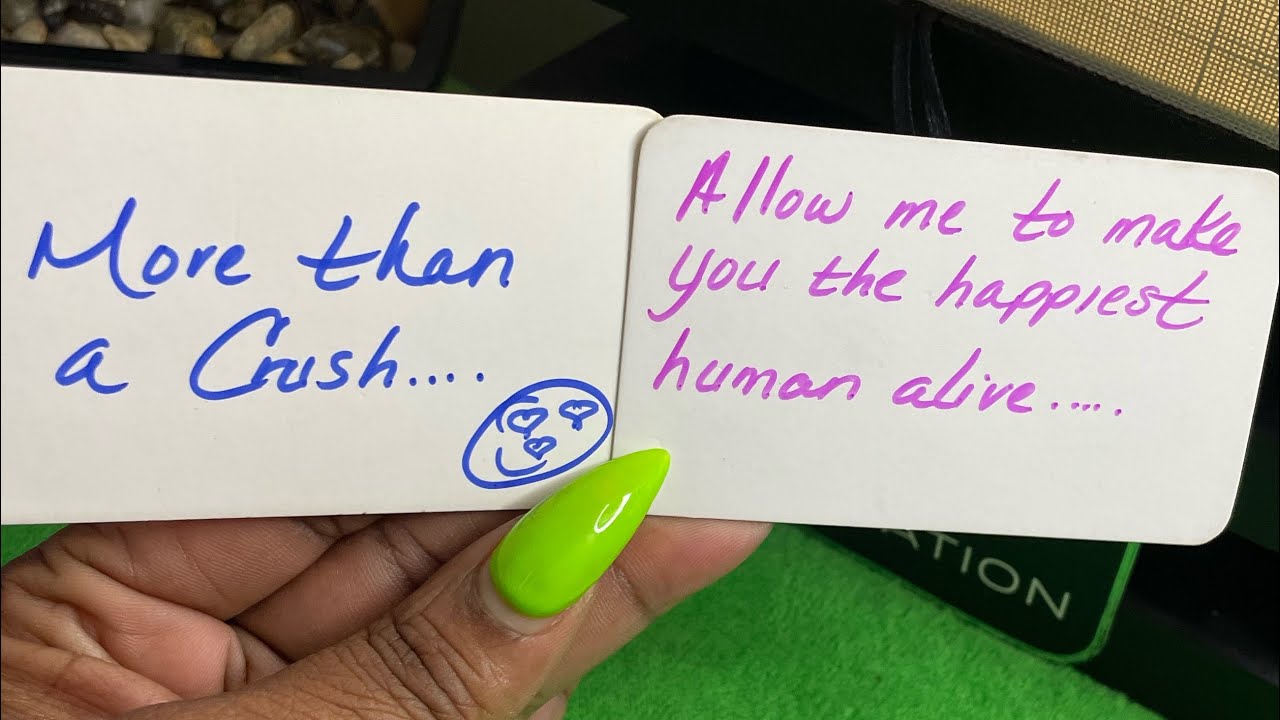 More than
a Crush....
Allow me to make
you the happiest
human alive.....
ATION